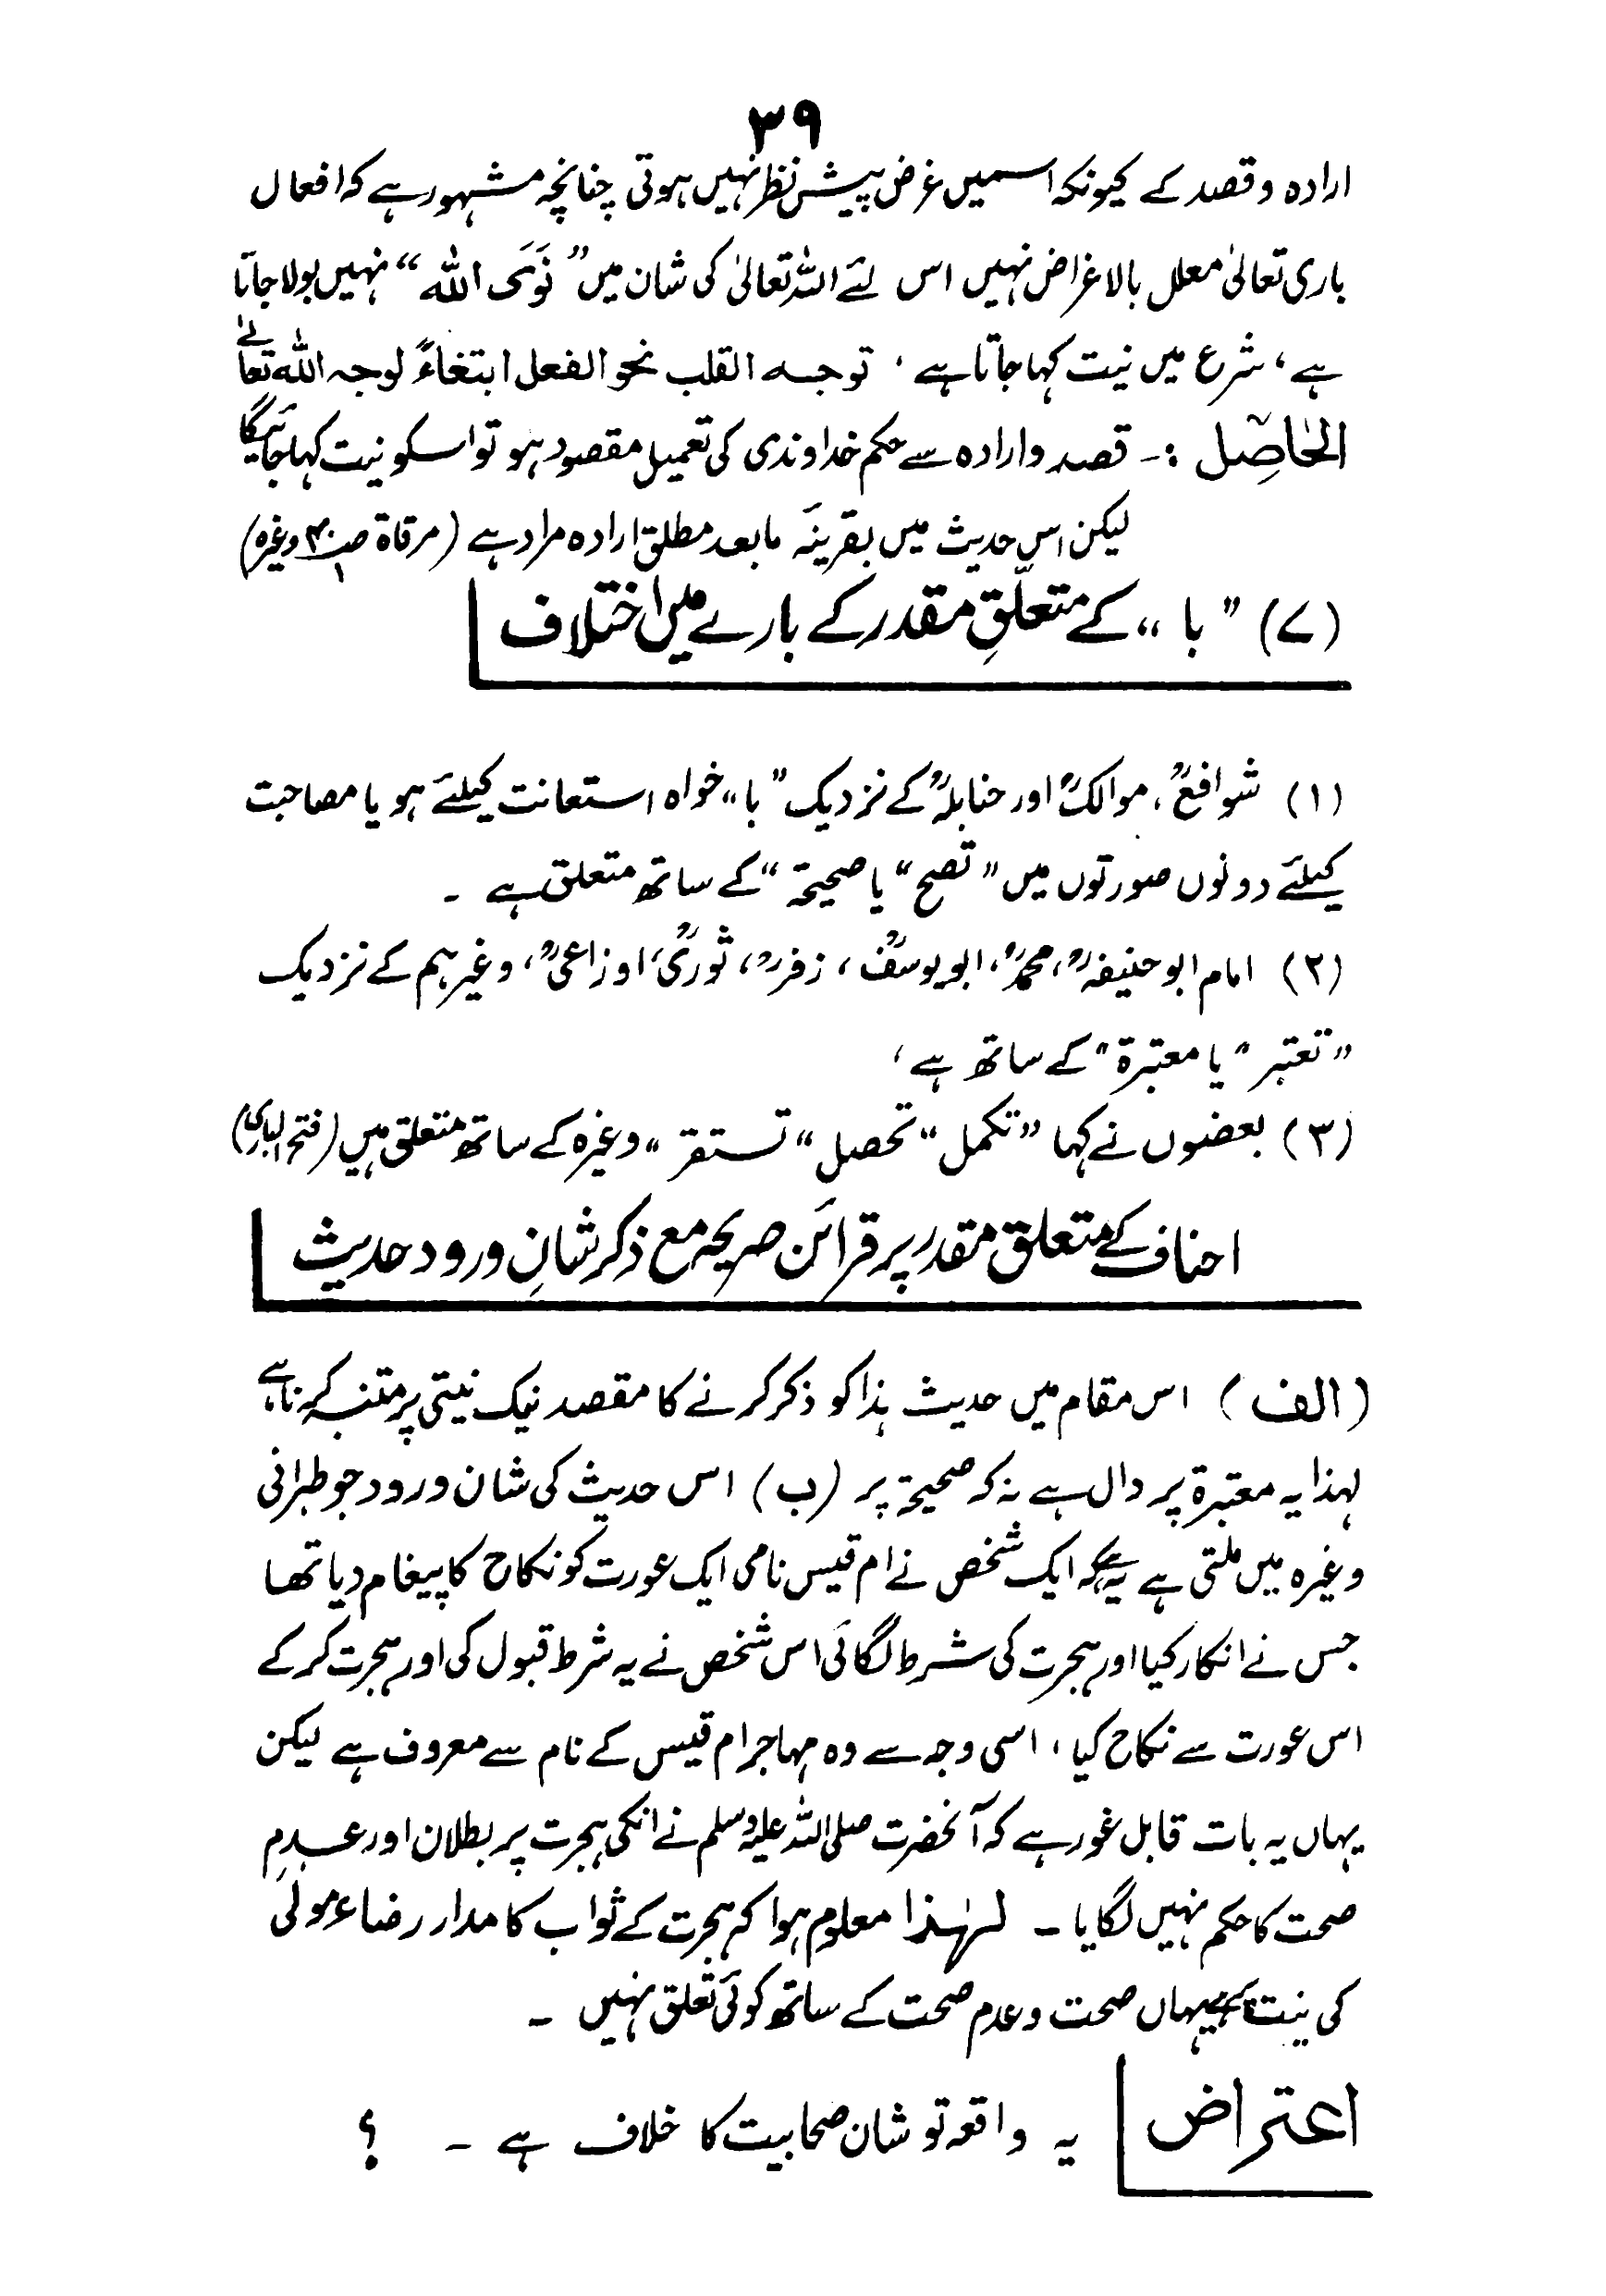 ۳۹
ارادہ وقصد کے کیونکہ اسمیں غرض پیش نظر نہیں ہوتی چنانچہ مشہور ہے کہ افعال
باری تعالیٰ معلل بالاغراض نہیں اس لئے اللہ تعالیٰ کی شان میں ”نَوَی اللہ“ نہیں بولا جاتا
ہے، شرع میں نیت کہا جاتا ہے، توجہ القلب نحو الفعل ابتغاءً لوجہ اللہ تعالےٰ
الحاصِل :۔ قصد وارادہ سے حکم خداوندی کی تعمیل مقصود ہو تو اسکو نیت کہا جائیگا
لیکن اس حدیث میں بقرینۂ مابعد مطلق ارادہ مراد ہے (مرقاۃ ص۴۰/۱ وغیرہ)
(۷) ”با“ کے متعلّقِ مقدر کے بارے میں اختلاف
(۱) شوافعؒ، موالکؒ اور حنابلہؒ کے نزدیک ”با“ خواہ استعانت کیلئے ہو یا مصاحبت
کیلئے دونوں صورتوں میں ”تصح“ یا صحیحۃ“ کے ساتھ متعلق ہے ۔
(۲) امام ابو حنیفہؒ، محمدؒ، ابو یوسفؒ، زفرؒ، ثوریؒ، اوزاعیؒ، وغیرہم کے نزدیک
”تعتبر“ یا معتبرۃ“ کے ساتھ ہے،
(۳) بعضوں نے کہا ”تکمل“ تحصل“ تستقر“ وغیرہ کے ساتھ متعلق ہیں (فتح الباری)
احناف کے متعلق مقدر پر قرائن صریحہ مع ذکر شانِ ورود حدیث
(الف) اس مقام میں حدیث ہذا کو ذکر کرنے کا مقصد نیک نیتی پر متنبہ کرنا ہے
لہذا یہ معتبرۃ پر دال ہے نہ کہ صحیحۃ پر (ب) اس حدیث کی شان ورود جو طبرانی
وغیرہ میں ملتی ہے یہ ہیکہ ایک شخص نے ام قیس نامی ایک عورت کو نکاح کا پیغام دیا تھا
جس نے انکار کیا اور ہجرت کی شرط لگائی اس شخص نے یہ شرط قبول کی اور ہجرت کر کے
اس عورت سے نکاح کیا، اسی وجہ سے وہ مہاجر ام قیس کے نام سے معروف ہے لیکن
یہاں یہ بات قابل غور ہے کہ آنحضرت صلی اللہ علیہ وسلم نے انکی ہجرت پر بطلان اور عدمِ
صحت کا حکم نہیں لگایا ۔ لہٰذا معلوم ہوا کہ ہجرت کے ثواب کا مدار رضاء مولٰی
کی نیت یہاں صحت وعدم صحت کے ساتھ کوئی تعلق نہیں ۔
اعتراض یہ واقعہ تو شان صحابیت کا خلاف ہے ۔ ؟